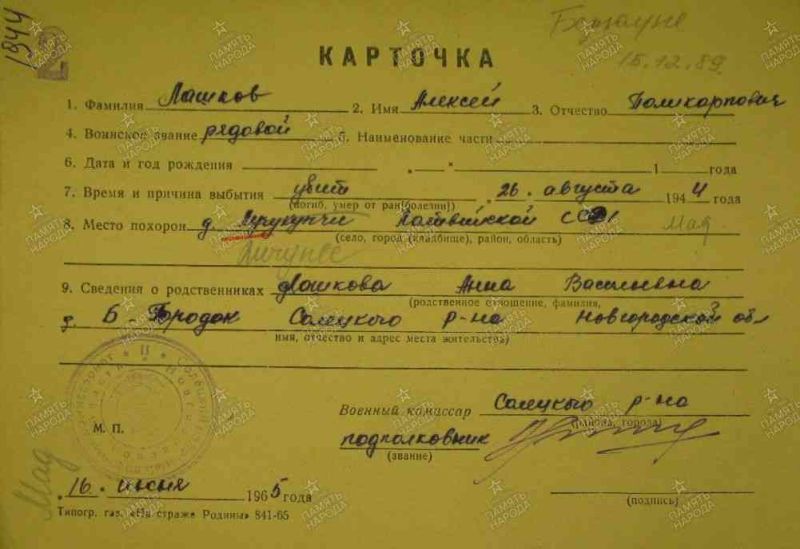 1944
2
15.12.89
КАРТОЧКА
1. Фамилия Лашков 2. Имя Алексей 3. Отчество Поликарпович
4. Воинское звание рядовой 5. Наименование части
6. Дата и год рождения " " 1 года
7. Время и причина выбытия убит 26. августа 1944 года
(погиб, умер от ран(болезни))
8. Место похорон д. Латвийской ССР Мад
(село, город (кладбище), район, область)
9. Сведения о родственниках Лашкова Анна Васильевна
(родственное отношение, фамилия,
д. Б-Городок Солецкого р-на Новгородской обл
имя, отчество и адрес места жительства)
Военный комиссар Солецкого р-на
(района, города)
М. П.
подполковник
(звание)
Мад
16. июня 1965 года
(подпись)
Типогр. газ. «На страже Родины» 841-65
ПАМЯТЬ НАРОДА